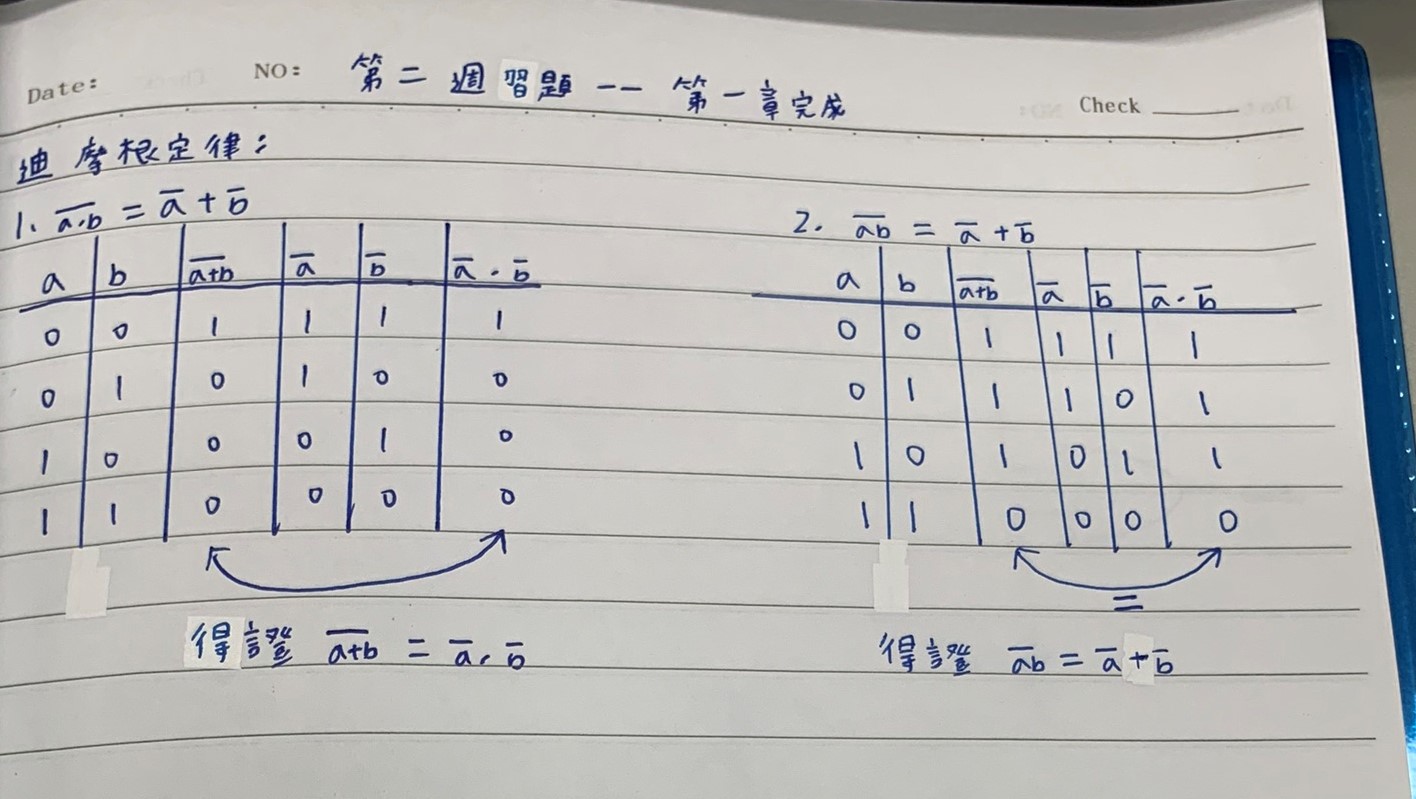 Date: NO: 第二週習題 -- 第一章完成 Check
迪摩根定律:
1、 a̅·̅b̅ = a̅ + b̅
a b a̅+̅b̅ a̅ b̅ a̅ · b̅
0 0 1 1 1 1
0 1 0 1 0 0
1 0 0 0 1 0
1 1 0 0 0 0
得證 a̅+̅b̅ = a̅ · b̅
2. a̅b̅ = a̅ + b̅
a b a̅+̅b̅ a̅ b̅ a̅ · b̅
0 0 1 1 1 1
0 1 1 1 0 1
1 0 1 0 1 1
1 1 0 0 0 0
=
得證 a̅b̅ = a̅ + b̅